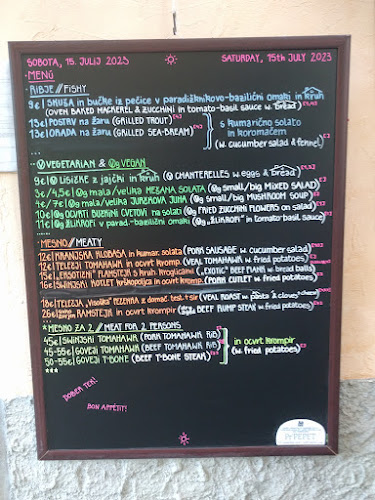 SOBOTA, 15. JULIJ 2023 SATURDAY, 15th JULY 2023
•MENÚ
•RIBJE // FISHY
9€ | SKUŠA in bučke iz pečice v paradižnikovo-bazilični omaki in kruh
(OVEN BAKED MACKEREL & ZUCCHINI in tomato-basil sauce w. bread)
13€ | POSTRV na žaru (GRILLED TROUT)
13€ | ORADA na žaru (GRILLED SEA-BREAM)
s kumarično solato
in koromačem
(w. cucumber salad & fennel)
VEGETARIAN & VEGAN
9€ | LISIČKE z jajčki in kruh (CHANTERELLES w. eggs & bread)
3€/4,5€ | mala/velika MEŠANA SOLATA (small/big MIXED SALAD)
4€/7€ | mala/velika JURČKOVA JUHA (small/big MUSHROOM SOUP)
10€ | OCVRTI BUČKINI CVETOVI na solati (FRIED ZUCCHINI FLOWERS on salad)
11€ | ŽLIKROFI v parad.-bazilični omaki ("ŽLIKROFI" in tomato basil sauce)
MESNO // MEATY
12€ | KRANJSKA KLOBASA in kumar. solata (PORK SAUSAGE w. cucumber salad)
12€ | TELEČJI TOMAHAWK in ocvrt kromp. (VEAL TOMAHAWK w. fried potatoes)
15€ | "EKSOTIČNI" FLAMSTEJK s kruh. kroglicami ("EXOTIC" BEEF FLANK w. bread balls)
16€ | SVINJSKI KOTLET in ocvrt krompir (PORK CUTLET w. fried potatoes)
18€ | TELEČJA PEČENKA z domač. test. (VEAL ROAST w. pasta &
26€ | RAMSTEJK in ocvrt krompir (BEEF RUMP STEAK w. fried potatoes)
*MESNO ZA 2 // MEAT FOR 2 PERSONS
45€ | SVINJSKI TOMAHAWK (PORK TOMAHAWK RIB)
45-55€ | GOVEJI TOMAHAWK (BEEF TOMAHAWK RIB)
50-55€ | GOVEJI T-BONE (BEEF T-BONE STEAK)
in ocvrt krompir
(w. fried potatoes)
***
DOBER TEK!
BON APPÉTIT!
Pr'PEPET